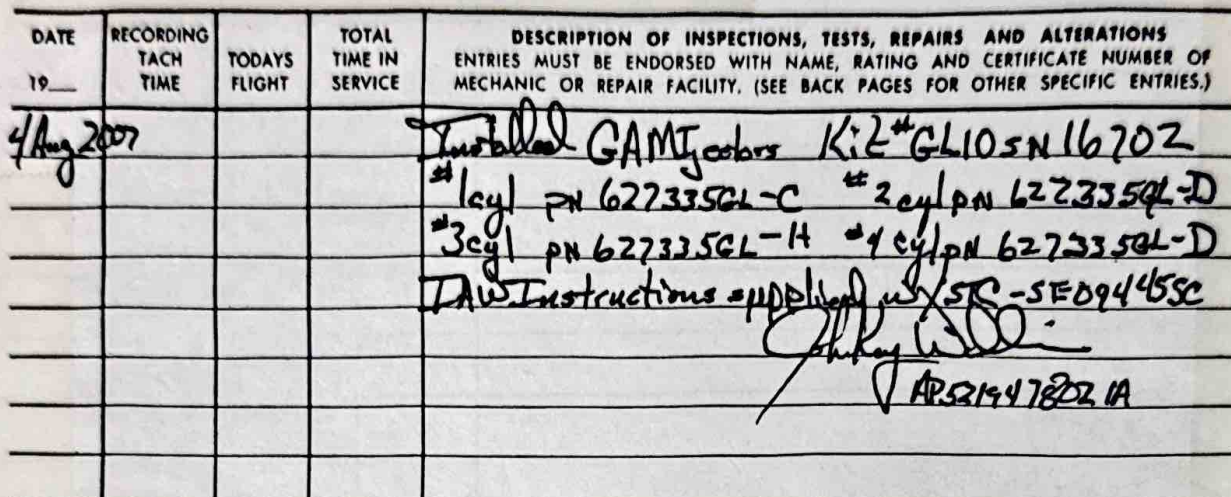 DATE
19__
RECORDING
TACH
TIME
TODAYS
FLIGHT
TOTAL
TIME IN
SERVICE
DESCRIPTION OF INSPECTIONS, TESTS, REPAIRS AND ALTERATIONS
ENTRIES MUST BE ENDORSED WITH NAME, RATING AND CERTIFICATE NUMBER OF
MECHANIC OR REPAIR FACILITY. (SEE BACK PAGES FOR OTHER SPECIFIC ENTRIES.)
4 Aug 2007
Installed GAMIjectors Kit #GL10 SN 16702
#1cyl PN 627335GL-C #2cyl PN 627335GL-D
#3cyl PN 627335GL-H #4cyl PN 627335GL-D
IAW Instructions supplied w/ STC-SE09445SC
AP521947802 IA